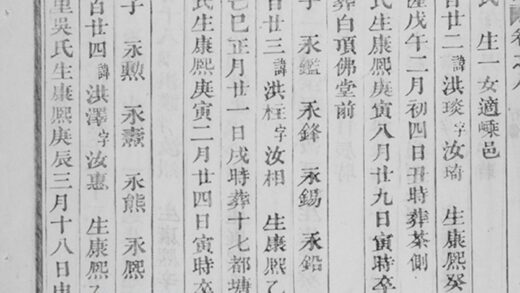 卷之八
氏 生一女適嵊邑
百廿二諱洪琰字汝琦 生康熙癸
隆戊午二月初四日丑時葬茶側
氏生康熙庚寅八月廿九日寅時卒
葬白項佛堂前
子 永鑑 永鋒 永錫 永鉛
百廿三諱洪柱字汝相 生康熙乙
巳正月廿一日戌時葬十七都塘
氏生康熙庚寅二月廿四日寅時卒
子 永勲 永燾 永熊 永熙
百廿四諱洪澤字汝惠 生康熙乙
里吳氏生康熙庚辰三月十八日申